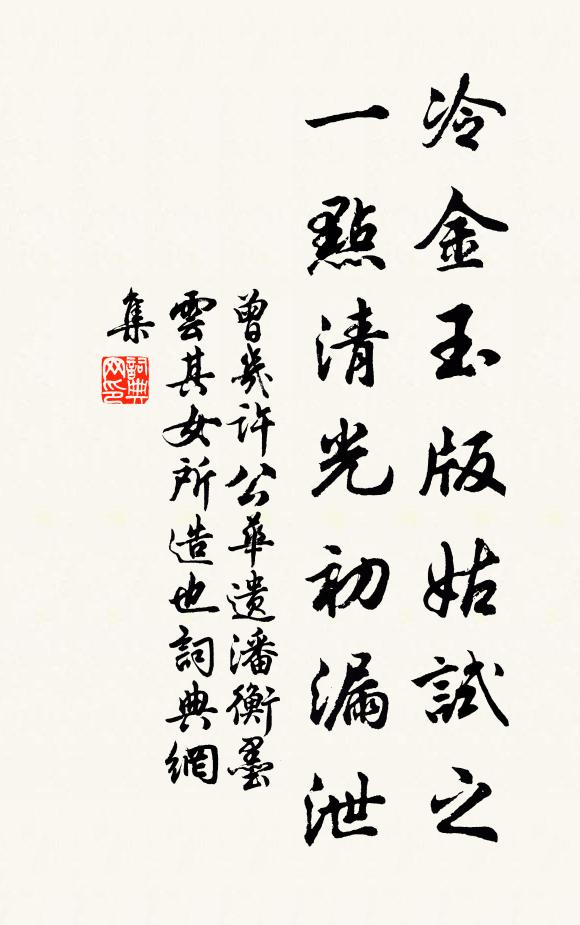 冷金玉版姑試之
一點清光初漏泄
曾幾許公華遺潘衡墨
雲其女所造也詞典網
集
詞典
网印